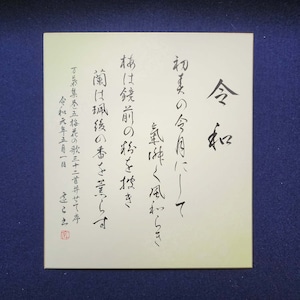 令和
初春の令月にして
氣淑く風和らぎ
梅は鏡前の粉を披き
蘭は珮後の香を薫らす
万葉集巻五梅花の歌三十二首并せて序
令和元年五月一日